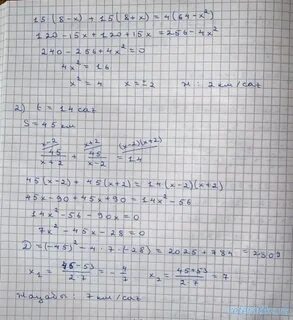 15(8-x) + 15(8+x) = 4(64-x²)
120-15x+120+15x=256-4x²
240-256+4x²=0
4x²=16
x²=4 x=±2 ж: 2 км/сағ
2) t = 14 сағ
S=45 км
x-2 x+2 (x-2)(x+2)
45/x+2 + 45/x-2 = 14
45(x-2) + 45(x+2) = 14(x-2)(x+2)
45x-90+45x+90=14x²-56
14x²-56-90x=0
7x²-45x-28=0
D=(-45)²-4·7·(-28)=2025+784=2809
x₁ = 45-53/2·7 = -4/7 x₂ = 45+53/2·7 = 7
Жауабы: 7 км/сағ